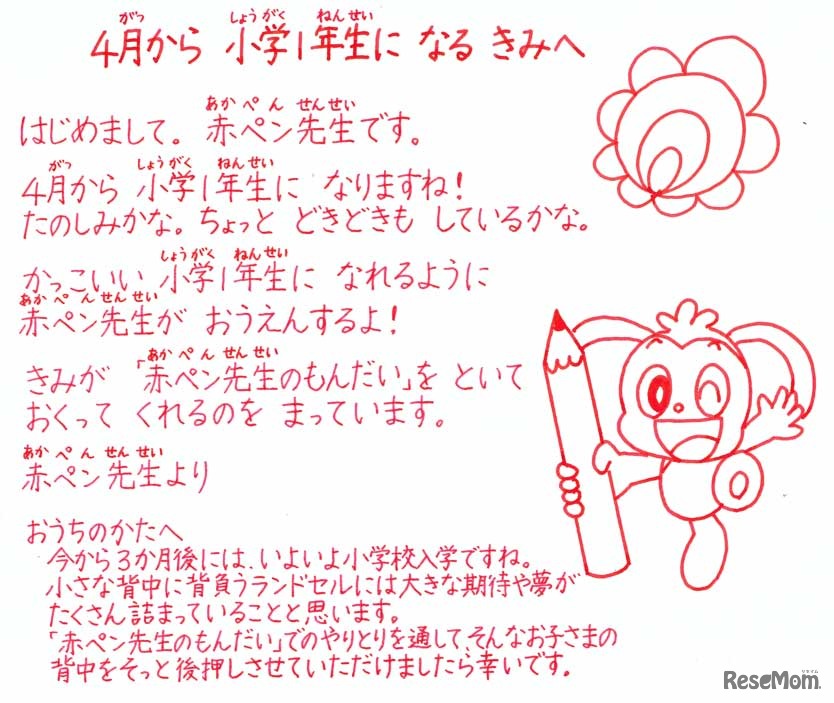 4月から 小学1年生に なる きみへ
はじめまして。赤ペン先生です。
4月から 小学1年生に なりますね!
たのしみかな。ちょっと どきどきも しているかな。
かっこいい 小学1年生に なれるように
赤ペン先生が おうえんするよ!
きみが 「赤ペン先生のもんだい」を といて
おくって くれるのを まっています。
赤ペン先生より
おうちのかたへ
今から3か月後には、いよいよ小学校入学ですね。
小さな背中に背負うランドセルには大きな期待や夢が
たくさん詰まっていることと思います。
「赤ペン先生のもんだい」でのやりとりを通して、そんなお子さまの
背中をそっと後押しさせていただけましたら幸いです。
ReseMom.